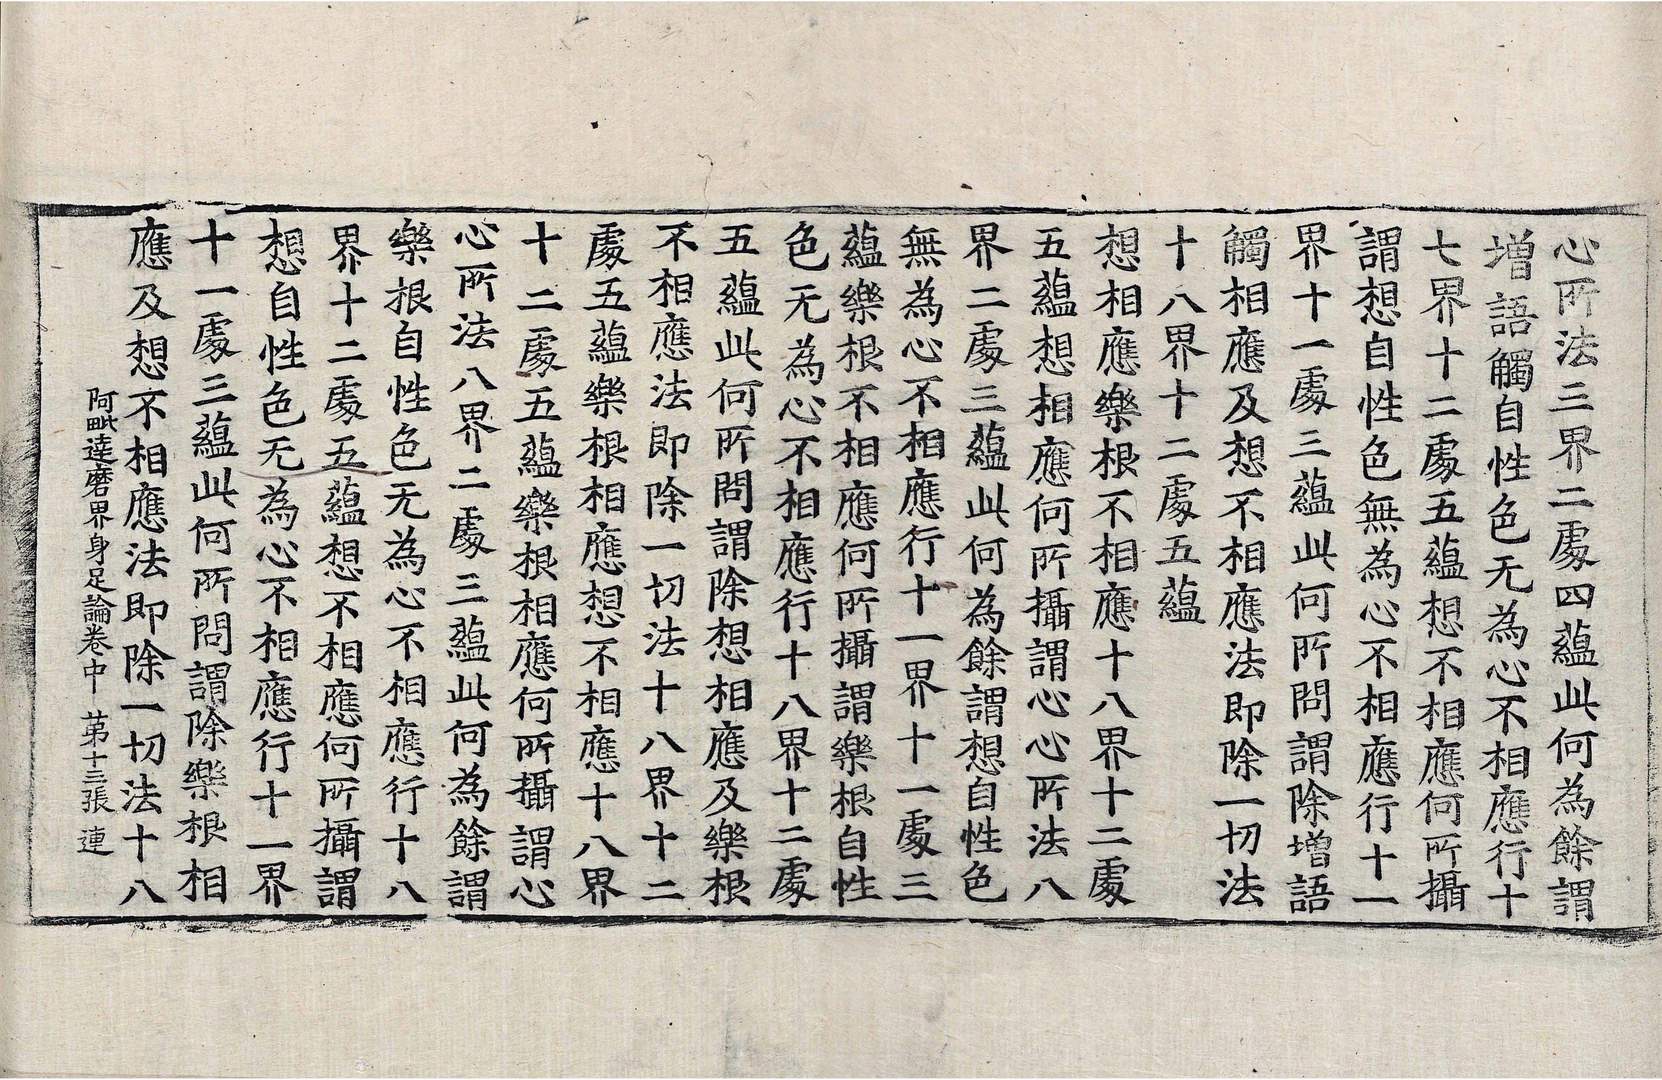 心所法三界二處四蘊此何為餘謂
增語觸自性色无為心不相應行十
七界十二處五蘊想不相應何所攝
謂想自性色無為心不相應行十一
界十一處三蘊此何所問謂除增語
觸相應及想不相應法即除一切法
十八界十二處五蘊
想相應樂根不相應十八界十二處
五蘊想相應何所攝謂心心所法八
界二處三蘊此何為餘謂想自性色
無為心不相應行十一界十一處三
蘊樂根不相應何所攝謂樂根自性
色无為心不相應行十八界十二處
五蘊此何所問謂除想相應及樂根
不相應法即除一切法十八界十二
處五蘊樂根相應想不相應十八界
十二處五蘊樂根相應何所攝謂心
心所法八界二處三蘊此何為餘謂
樂根自性色无為心不相應行十八
界十二處五蘊想不相應何所攝謂
想自性色无為心不相應行十一界
十一處三蘊此何所問謂除樂根相
應及想不相應法即除一切法十八
阿毗達磨界身足論卷中 苐十三張 連